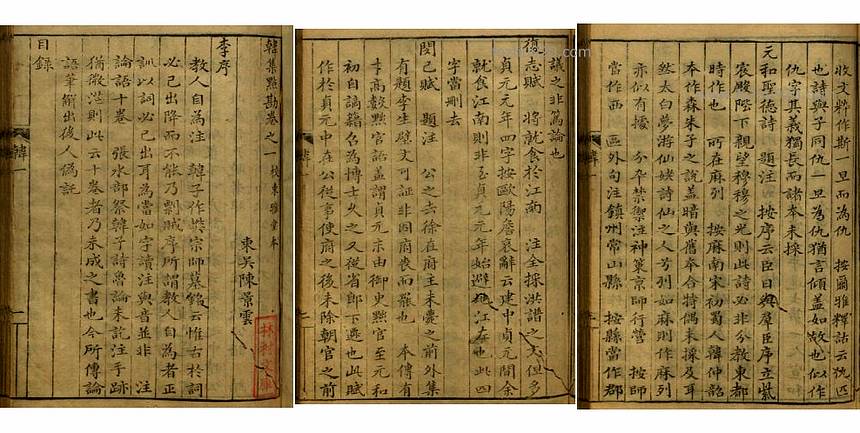 韓集點勘卷之一 校東雅堂本
東吳陳景雲
李序
教人自為注 韓子作樊宗師墓銘云惟古於詞
必己出降而不能乃剽賊序所謂教人自為者正
訓以詞必己出耳為當如字讀注與音並非 注
論語十卷 張水部祭韓子詩魯論未訖注手跡
猶微茫則此云十卷者乃未成之書也今所傳論
語筆解出後人偽託
目錄
韓一
議之非篤論也
復志賦 將就食於江南 注全採洪譜之文但多
貞元元年四字按歐陽詹哀辭云建中貞元間余
就食江南則非至貞元元年始避地江左也此四
字當刪去
閔己賦 題注 公之去徐在府主未薨之前外集
有題李生壁文可証非因府喪而罷也 本傳有
李高數黜官語蓋謂貞元末由御史黜官至元和
初自謫籍召為博士久之又從省郎下遷也此賦
作於貞元中在公從事使府之後未除朝官之前
韓一
收文粹作斯一旦而為仇 按爾雅釋詁云仇匹
也詩與子同仇一旦為仇猶言傾蓋如故也似作
仇字其義獨長而諸本未採
元和聖德詩 題注 按序云臣日與羣臣序立紫
宸殿陛下親望穆穆之光則此詩必非分教東都
時作也 所在麻列 按麻南宋初蜀人韓仲韶
本作森朱子之說蓋暗與舊本合特偶未採及耳
然太白夢游仙姥詩仙之人兮列如麻則作麻列
亦似有據 分卒禁禦注神策京師行營 按師
當作西 區外句注鎮州常山縣 按縣當作郡
韓一